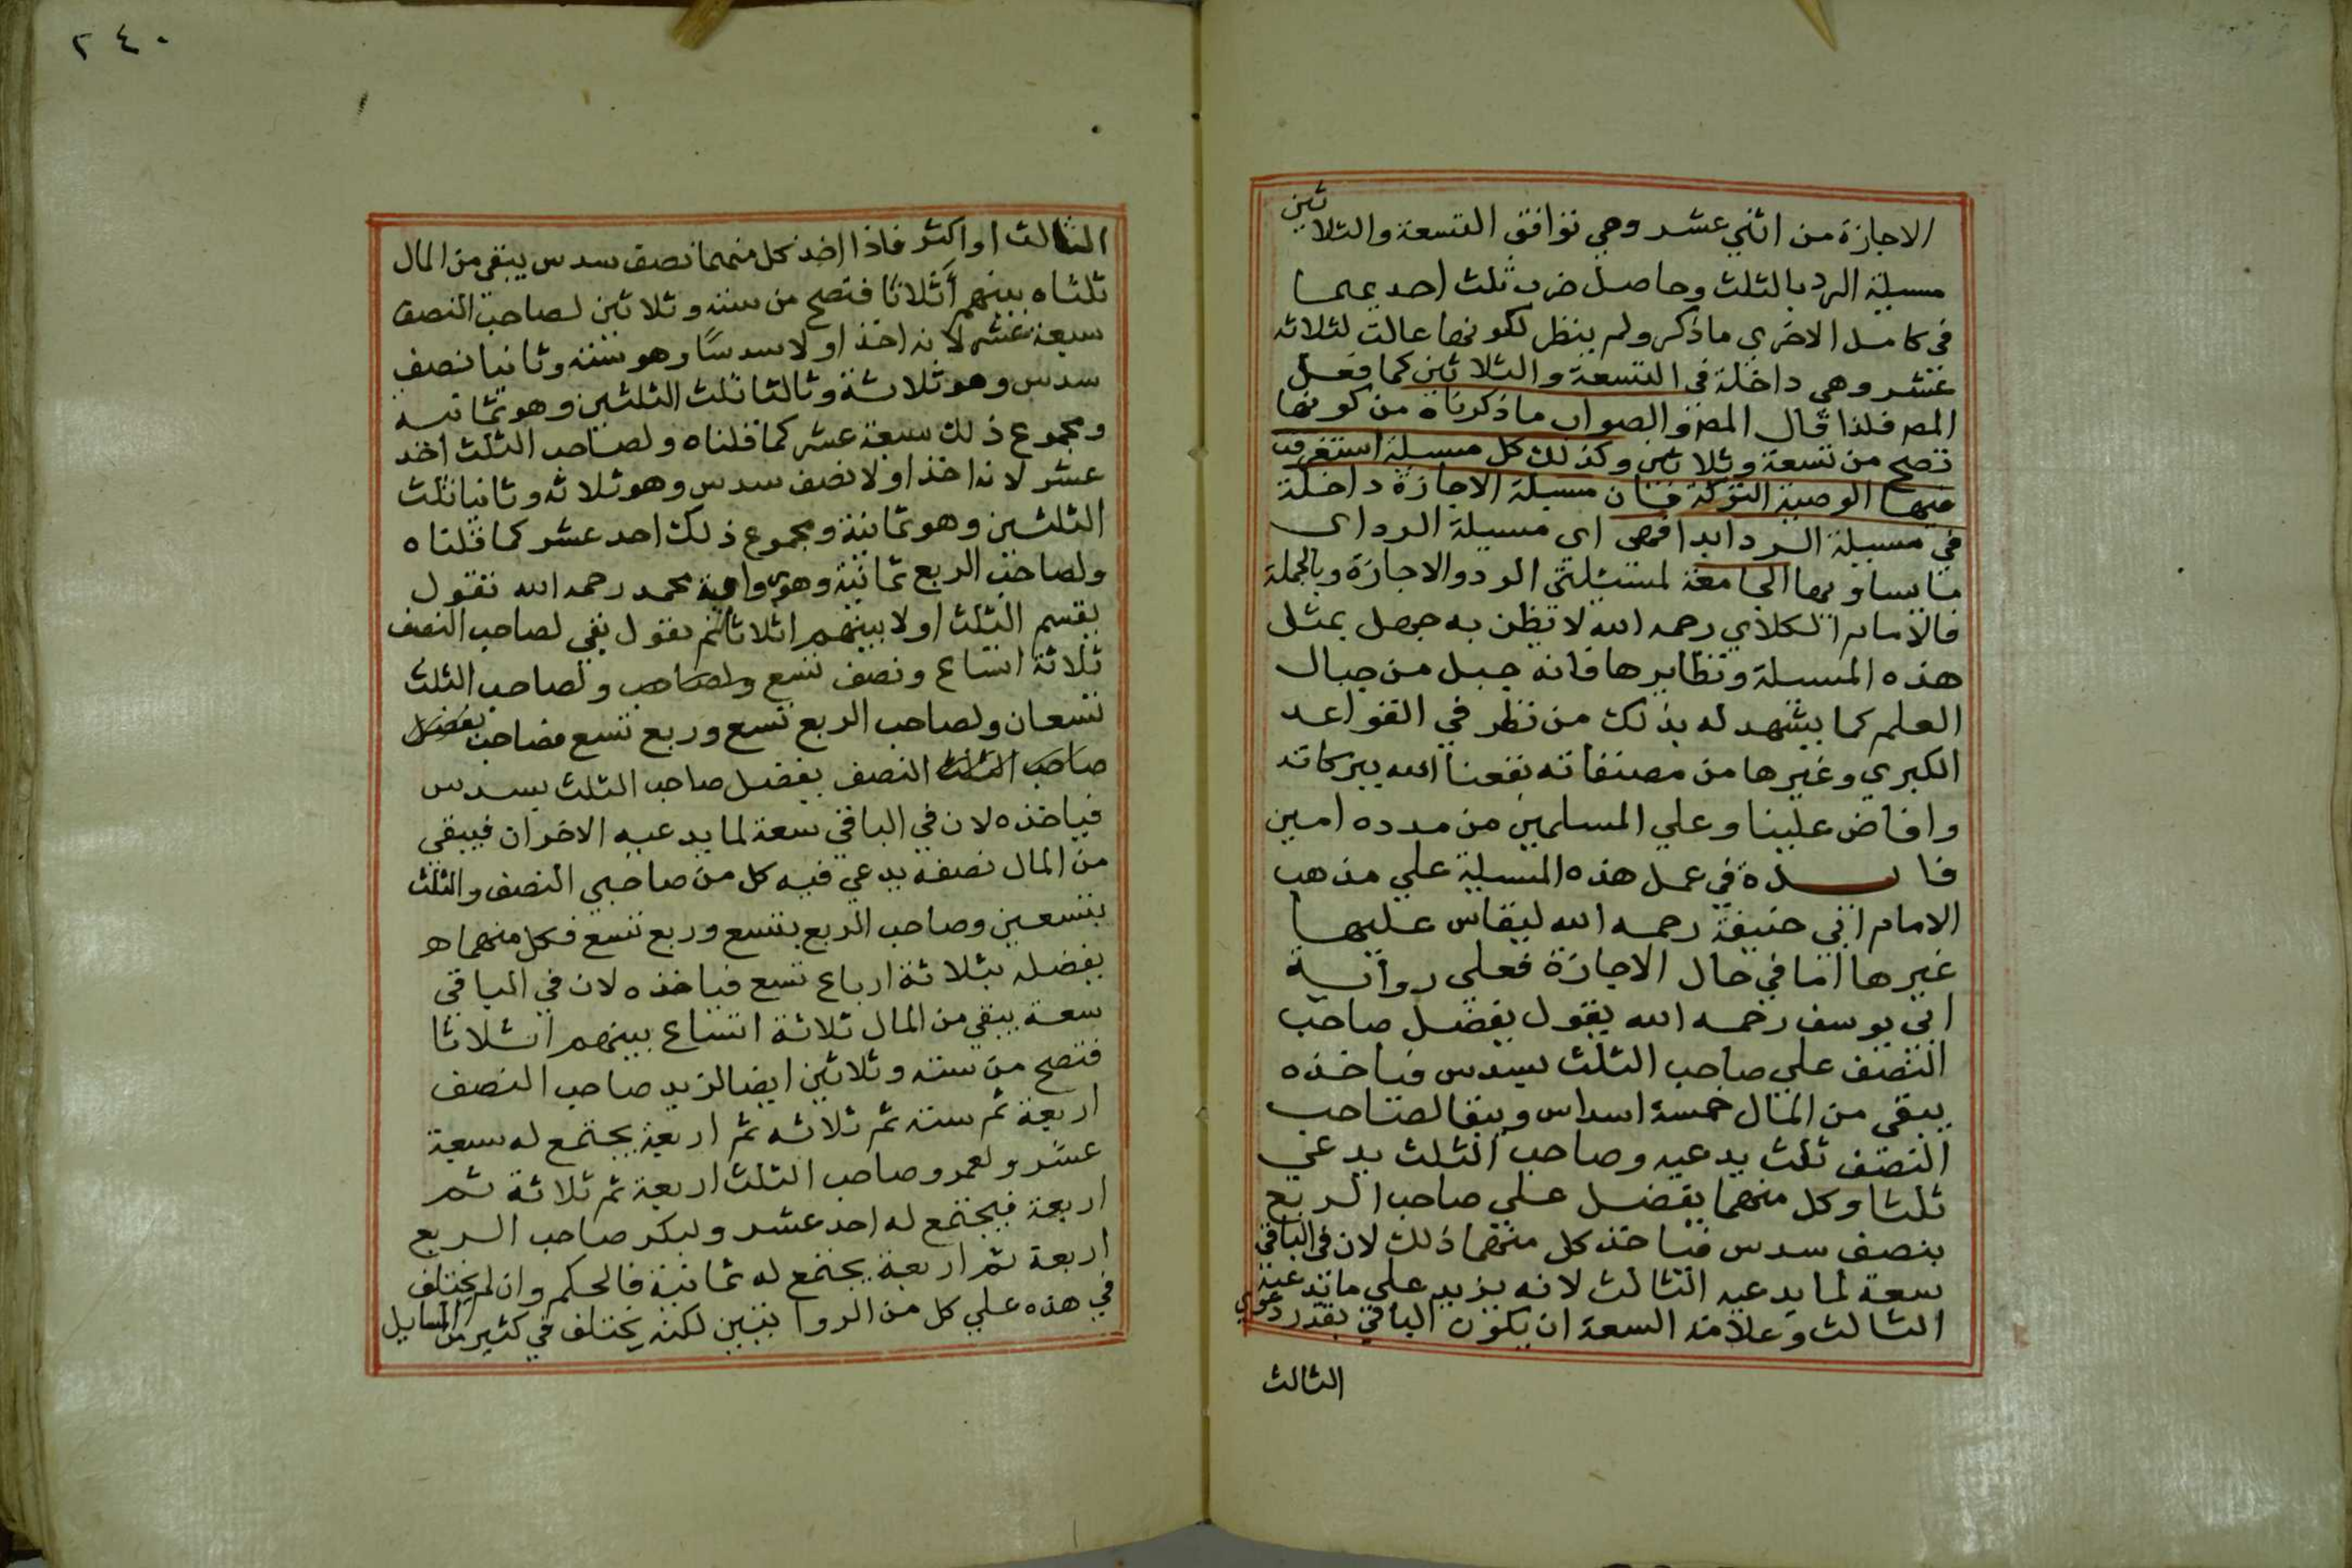 الاجازة من اثني عشر وهي توافق التسعة والثلاثين
مسيلة الرد بالثلث وحاصل ضرب ثلث احديهما
في كامل الاخرى ما ذكر ولم ينظر لكونها عالت لثلاثه
عشر وهي داخلة في التسعة والثلاثين كما فعل
المصر فلذا قال المصر والصواب ما ذكرناه من كونها
تصح من تسعة وثلاثين وكذلك كل مسيلة استغرقت
فيها الوصية التركة فان مسيلة الاجازة داخلة
في مسيلة الرد ابدا فهي اي مسيلة الرد اي
ما يساويها الجامعة لمسئلتي الرد والاجازة وبالجملة
فالامام الكلاي رحمه الله لا يظن به جهل بمثل
هذه المسيلة ونظايرها فانه جبل من جبال
العلم كما يشهد له بذلك من نظر في القواعد
الكبري وغيرها من مصنفاته نفعنا الله ببركاته
وافاض علينا وعلي المسلمين من مدده امين
فايدة في عمل هذه المسيلة علي مذهب
الامام ابي حنيفة رحمه الله ليقاس عليها
غيرها اما في حال الاجازة فعلى رواية
ابي يوسف رحمه الله يقول يفضل صاحب
النصف علي صاحب الثلث بسدس فياخذه
يبقى من المال خمسة اسداس ويبقا لصاحب
النصف ثلث يدعيه وصاحب الثلث يدعي
ثلثا وكل منهما يفضل علي صاحب الربع
بنصف سدس فياخذ كل منهما ذلك لان في الباقي
سعة لما يدعيه الثالث لانه يزيد علي ما يدعيه
الثالث وعلامة السعة ان يكون الباقي بقدر دعوي
الثالث
٢٤٠
الثالث او اكثر فاذا اخذ كل منهما نصف سدس يبقي من المال
ثلثاه بينهم أثلاثا فتصح من سته وثلاثين لصاحب النصف
سبعة عشر لانه اخذ اولا سدسًا وهو سته وثانيا نصف
سدس وهو ثلاثة وثالثا ثلث الثلثين وهو ثمانيه
ومجموع ذلك سبعة عشر كما قلناه ولصاحب الثلث احد
عشر لانه اخذ اولا نصف سدس وهو ثلاثه وثانيا ثلث
الثلثين وهو ثمانية ومجموع ذلك احد عشر كما قلناه
ولصاحب الربع ثمانية وهو رواية محمد رحمه الله نقول
يقسم الثلث اولا بينهم اثلاثا ثم يقول بقي لصاحب النصف
ثلاثة اتساع ونصف تسع ولصاحب ولصاحب الثلث
تسعان ولصاحب الربع تسع وربع تسع فصاحب يفضل
صاحب الثلث النصف يفضل صاحب الثلث بسدس
فياخذه لان في الباقي سعة لما يدعيه الاخران فيبقي
من المال نصفه يدعي فيه كل من صاحبي النصف والثلث
بتسعين وصاحب الربع بتسع وربع تسع فكل منهما
يفضله بثلاثة ارباع تسع فياخذه لان في الباقي
سعة يبقي من المال ثلاثة اتساع بينهم اثلاثا
فتصح من سته وثلاثين ايضا لزيد صاحب النصف
اربعة ثم ستة ثم ثلاثه ثم اربعة يجتمع له سبعة
عشر ولعمرو صاحب الثلث اربعة ثم ثلاثة ثم
اربعة فيجتمع له احد عشر ولبكر صاحب الربع
اربعة ثم اربعة يجتمع له ثمانية فالحكم وان لم يختلف
في هذه علي كل من الروايتين لكنه يختلف في كثير من المسايل